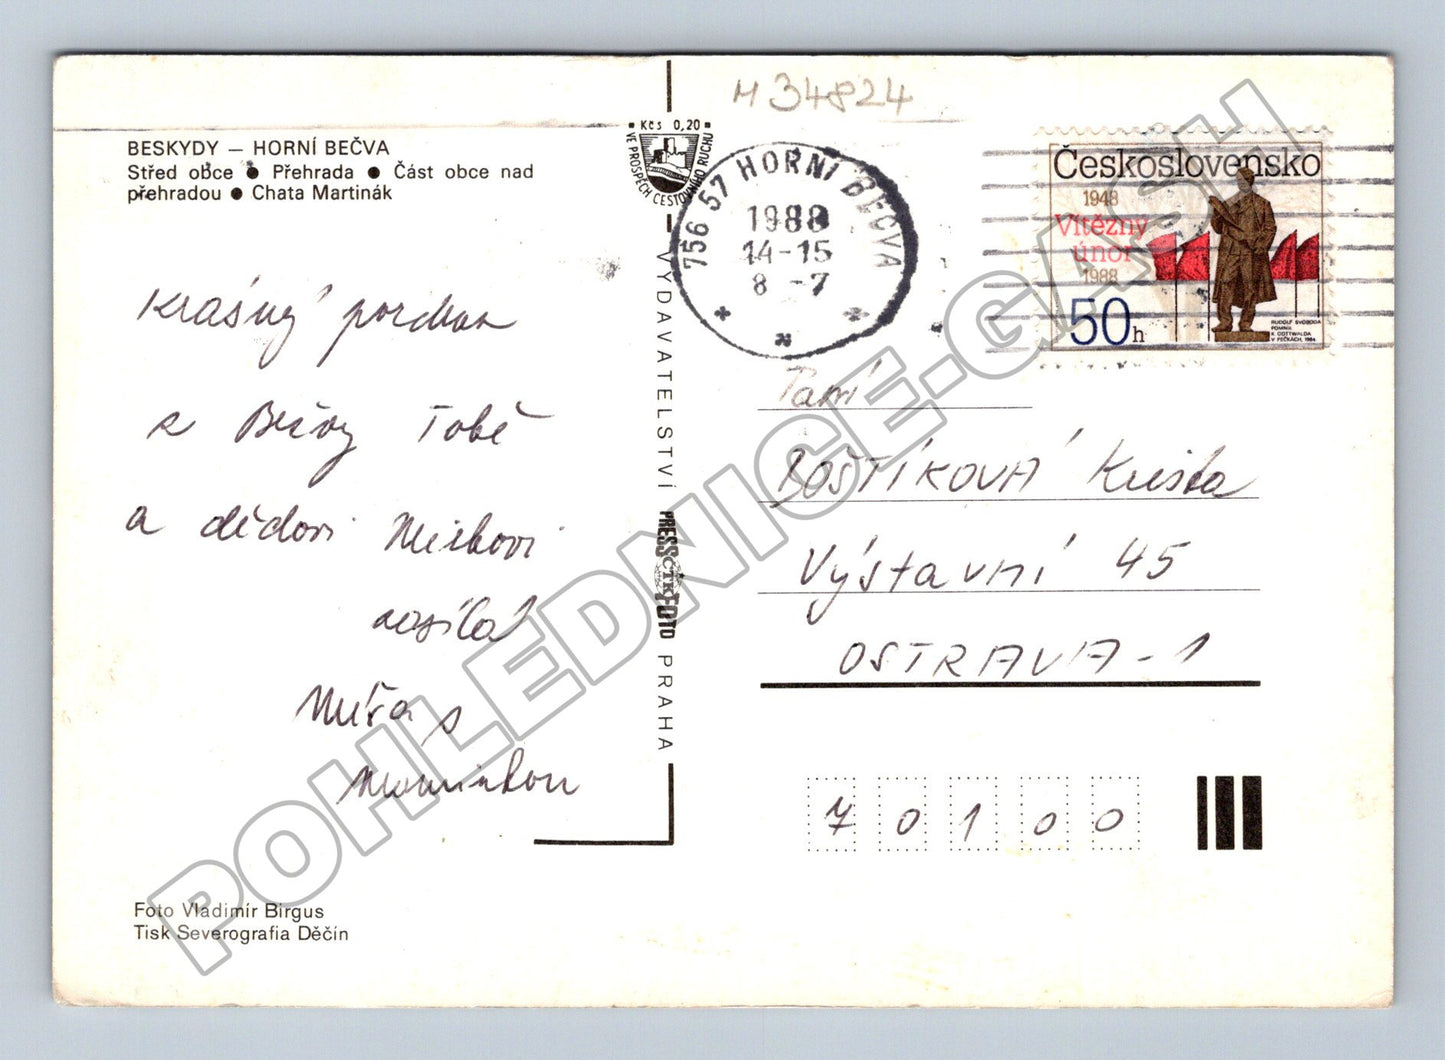 M 34824
BESKYDY – HORNÍ BEČVA
Střed obce ● Přehrada ● Část obce nad
přehradou ● Chata Martinák
Kčs 0,20
VE PROSPĚCH CESTOVNÍHO RUCHU
756 57 HORNÍ BEČVA
1988
14-15
8 -7
Československo
1948
Vítězný
únor
1988
50h
RUDOLF SVOBODA
POMNÍK
K. GOTTWALDA
V PEČKÁCH, 1984
Krásný pozdrav
z Bečvy Tobě
a dědovi Mirkovi
posílá
Míra s
Maminkou
VYDAVATELSTVÍ PRESSFOTO PRAHA
ČTK
Paní
BOŠTÍKOVÁ Krista
Výstavní 45
OSTRAVA-1
7 0 1 0 0
Foto Vladimír Birgus
Tisk Severografia Děčín
POHLEDNICE-GASH